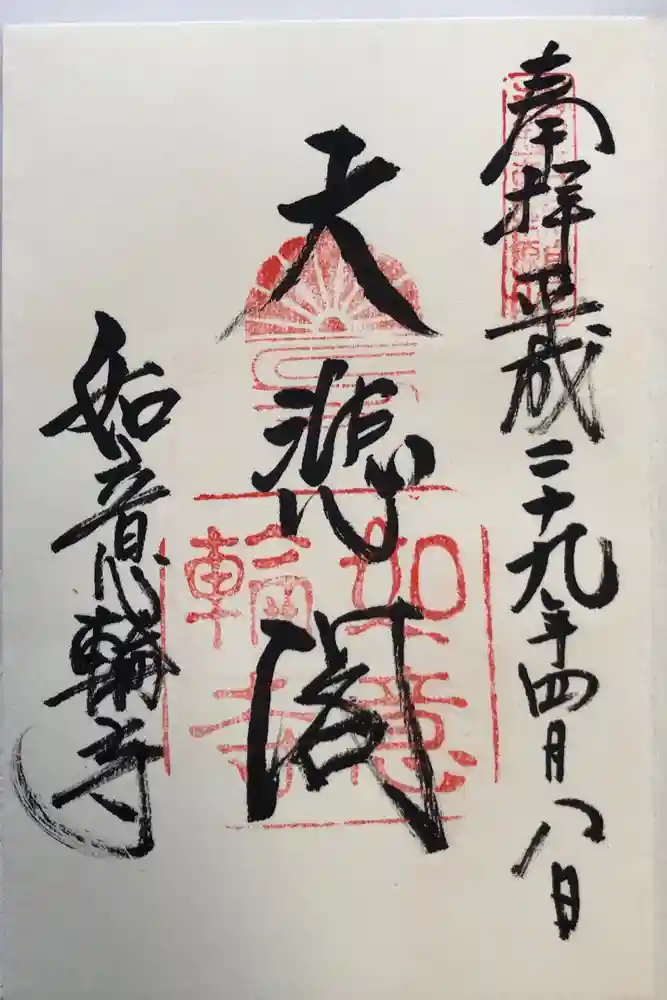 奉拝 平成二十九年四月八日
大悲閣
如意輪寺
如意
輪寺